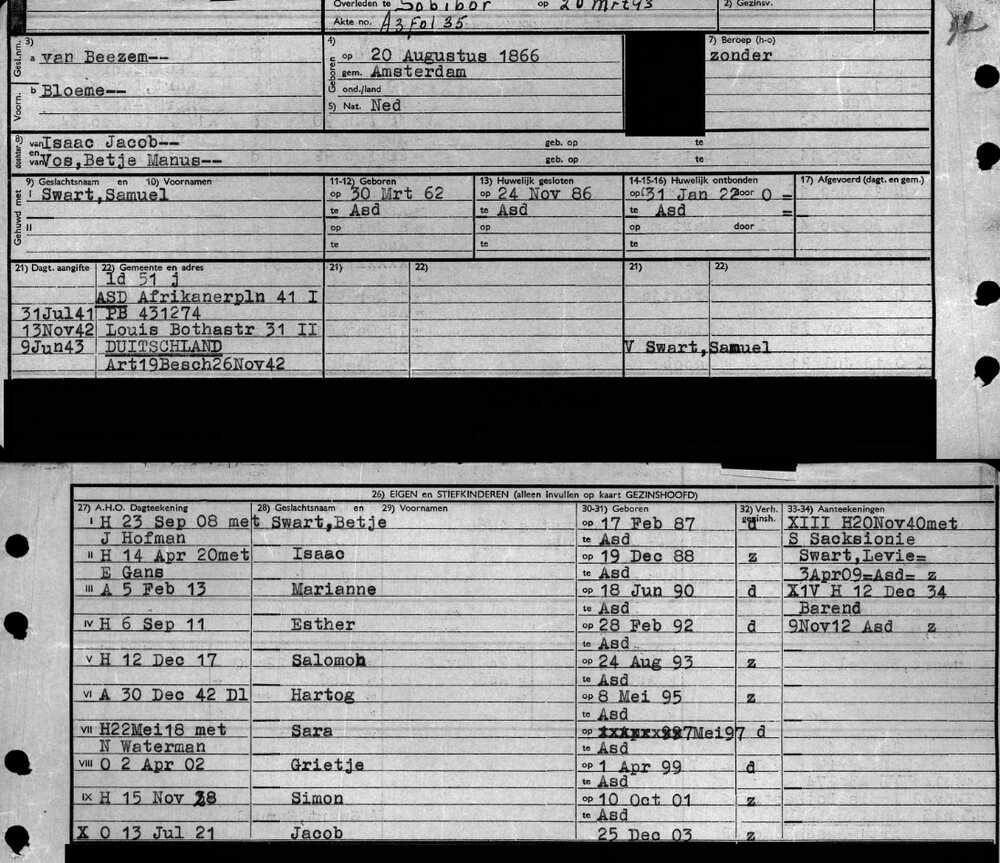 Overleden te Sobibor op 20 Mrt 43 2) Gezinsv.
Akte no. A3 Fol 35
3) Gesl.nm. a van Beezem--
4) Geboren op 20 Augustus 1866
gem. Amsterdam
7) Beroep (h-o)
zonder
Voorn. b Bloeme--
ond./land
5) Nat. Ned
8) van Isaac Jacob-- geb. op te
en van Vos,Betje Manus-- geb. op te
9) Geslachtsnaam en 10) Voornamen 11-12) Geboren 13) Huwelijk gesloten 14-15-16) Huwelijk ontbonden 17) Afgevoerd (dagt. en gem.)
Gehuwd met I Swart,Samuel op 30 Mrt 62 op 24 Nov 86 op 31 Jan 22 door O =
te Asd te Asd te Asd =
II op op op door
te te te
21) Dagt. aangifte 22) Gemeente en adres 21) 22) 21) 22)
ld 51 j
ASD Afrikanerpln 41 I
31Jul41 PB 431274
13Nov42 Louis Bothastr 31 II
9Jun43 DUITSCHLAND V Swart,Samuel
Art19Besch26Nov42
26) EIGEN en STIEFKINDEREN (alleen invullen op kaart GEZINSHOOFD)
27) A.H.O. Dagteekening 28) Geslachtsnaam en 29) Voornamen 30-31) Geboren 32) Verh. gezinsh. 33-34) Aanteekeningen
I H 23 Sep 08 met Swart,Betje op 17 Feb 87 d XIII H20Nov40met
J Hofman te Asd S Sacksionie
II H 14 Apr 20met Isaac op 19 Dec 88 z Swart,Levie=
E Gans te Asd 3Apr09=Asd= z
III A 5 Feb 13 Marianne op 18 Jun 90 d X1V H 12 Dec 34
te Asd Barend
IV H 6 Sep 11 Esther op 28 Feb 92 d 9Nov12 Asd z
te Asd
V H 12 Dec 17 Salomon op 24 Aug 93 z
te Asd
VI A 30 Dec 42 Dl Hartog op 8 Mei 95 z
te Asd
VII H22Mei18 met Sara op 7Mei97 d
N Waterman te Asd
VIII O 2 Apr 02 Grietje op 1 Apr 99 d
te Asd
IX H 15 Nov 28 Simon op 10 Oct 01 z
te Asd
X O 13 Jul 21 Jacob 25 Dec 03 z